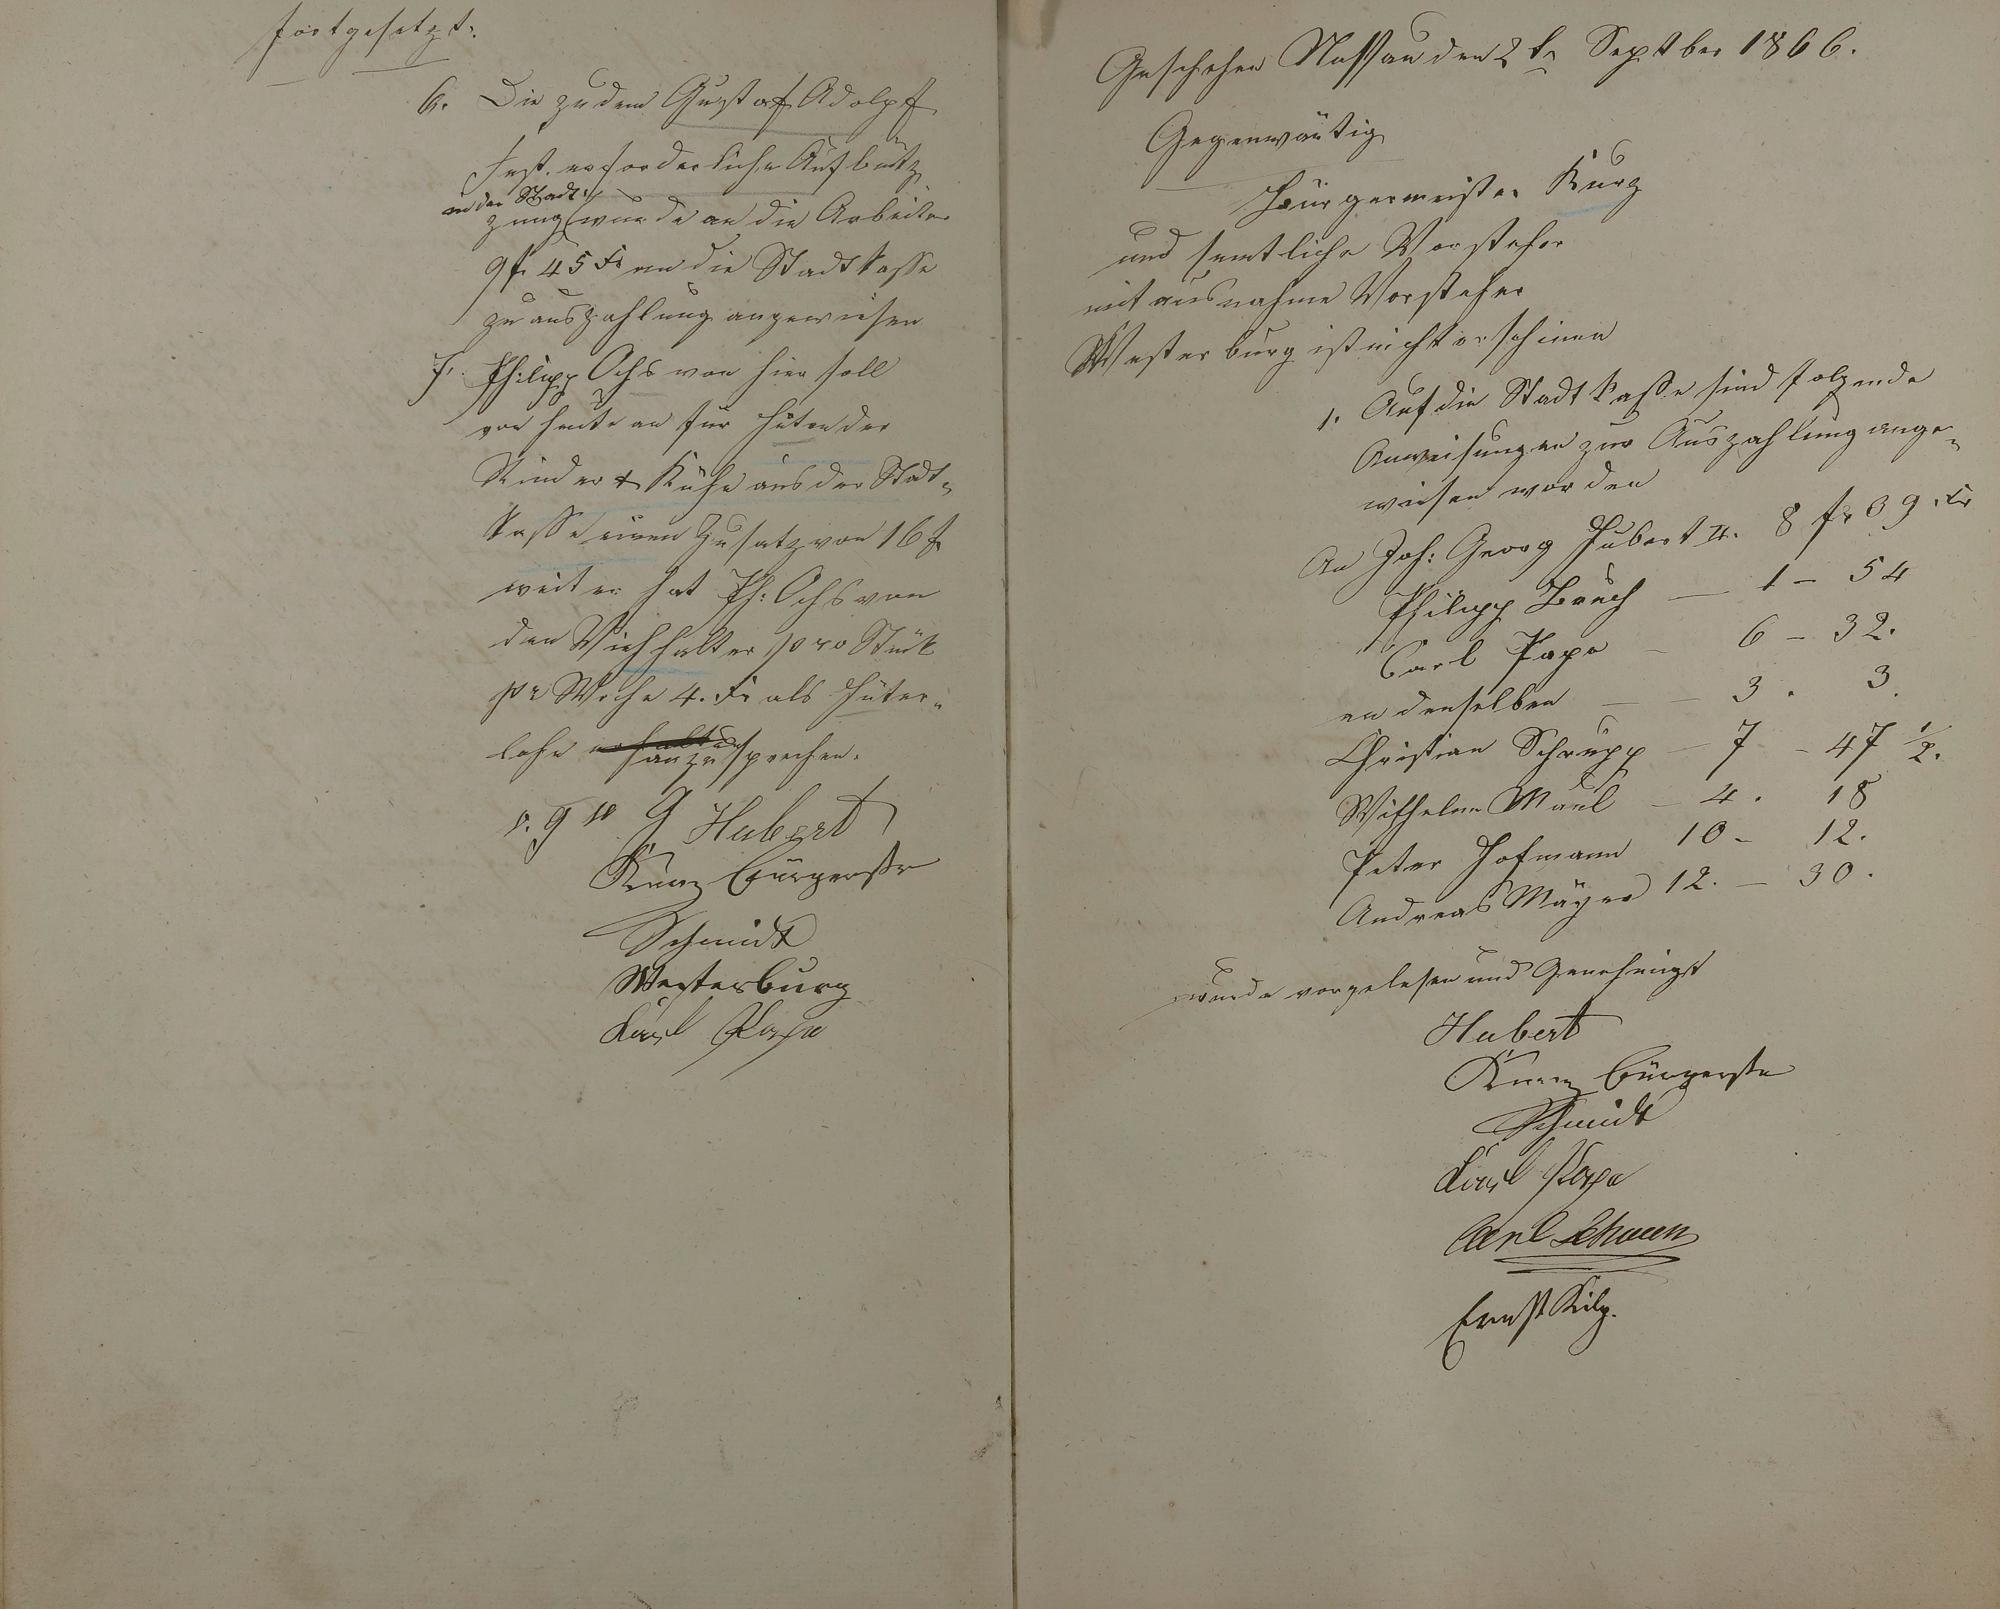 fortgesetzt.
6. Die zu dem Gustaf Adolpf
Fest. erforderliche Aufbütz
in der Stadt
zung wurde an die Arbeiter
9 f. 45 Fr an die Stadtkasse
zu auszahlung angewiesen
7. Philipp Ochs von hier soll
von heute an für hüten der
Rinder & Kühe aus der Stadt-
kasse einen Zusatz von 16 f.
weiter hat Ph: Ochs von
den Viehhalter pro Stük
pr Woche 4. Fr als Hüter-
lohn anzusprechen.
v. g u G Hubert
Kurz Bürgerstr
Schmidt
Westerburg
Karl Pape
Geschehen Nassau den 2tn Septber 1866.
Gegenwärtig
Bürgermeister Kurz
und semtliche Vorsteher
mit ausnahme Vorsteher
Westerburg ist nicht erschinen
1. Auf die Stadtkasse sind folgende
Anweisungen zur Auszahlung ange-
wiesen worden
An Joh: Georg Hubert II. 8 fr 39 Fr
Philipp Bruch — 1 — 54
Carl Pape — 6 — 32.
an denselben — — 3 . 3.
Christian Schrupp — 7 — 47 1/2.
Wilhelm Maul — 4 . 18
Peter Hofmann 10 — 12.
Andreas Mäyer 12. — 30.
wurde vorgelesen und Genehmigt
Hubert
Kurz Bürgerstr
Schmidt
Karl Pape
Carl Schwenk
Ernst Kilp.